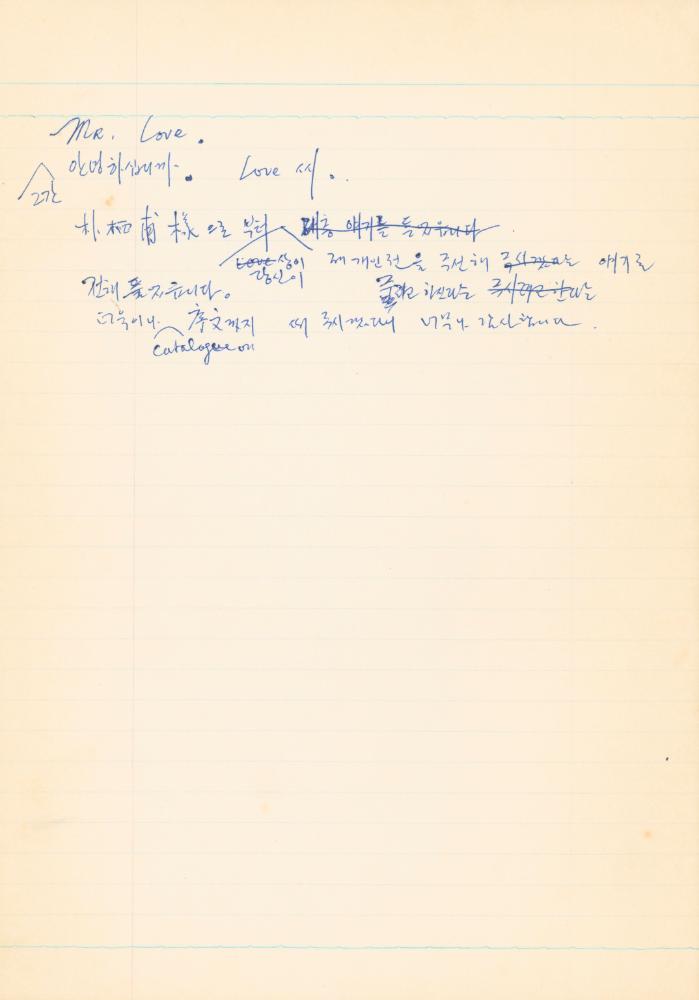 Mr. Love.
안녕하십니까. Love 씨.
그간
朴栖甫 様으로 부터 대충 얘기를 듣고 있읍니다
Love 상이 제 개인전을 주선해 주시겠다는 얘기를
당신이
전해 듣고 있읍니다. 줄려고 하신다는 주시려고 한다는
더욱이나 序文까지 써 주시겠다니 너무나 감사합니다.
catalogue에